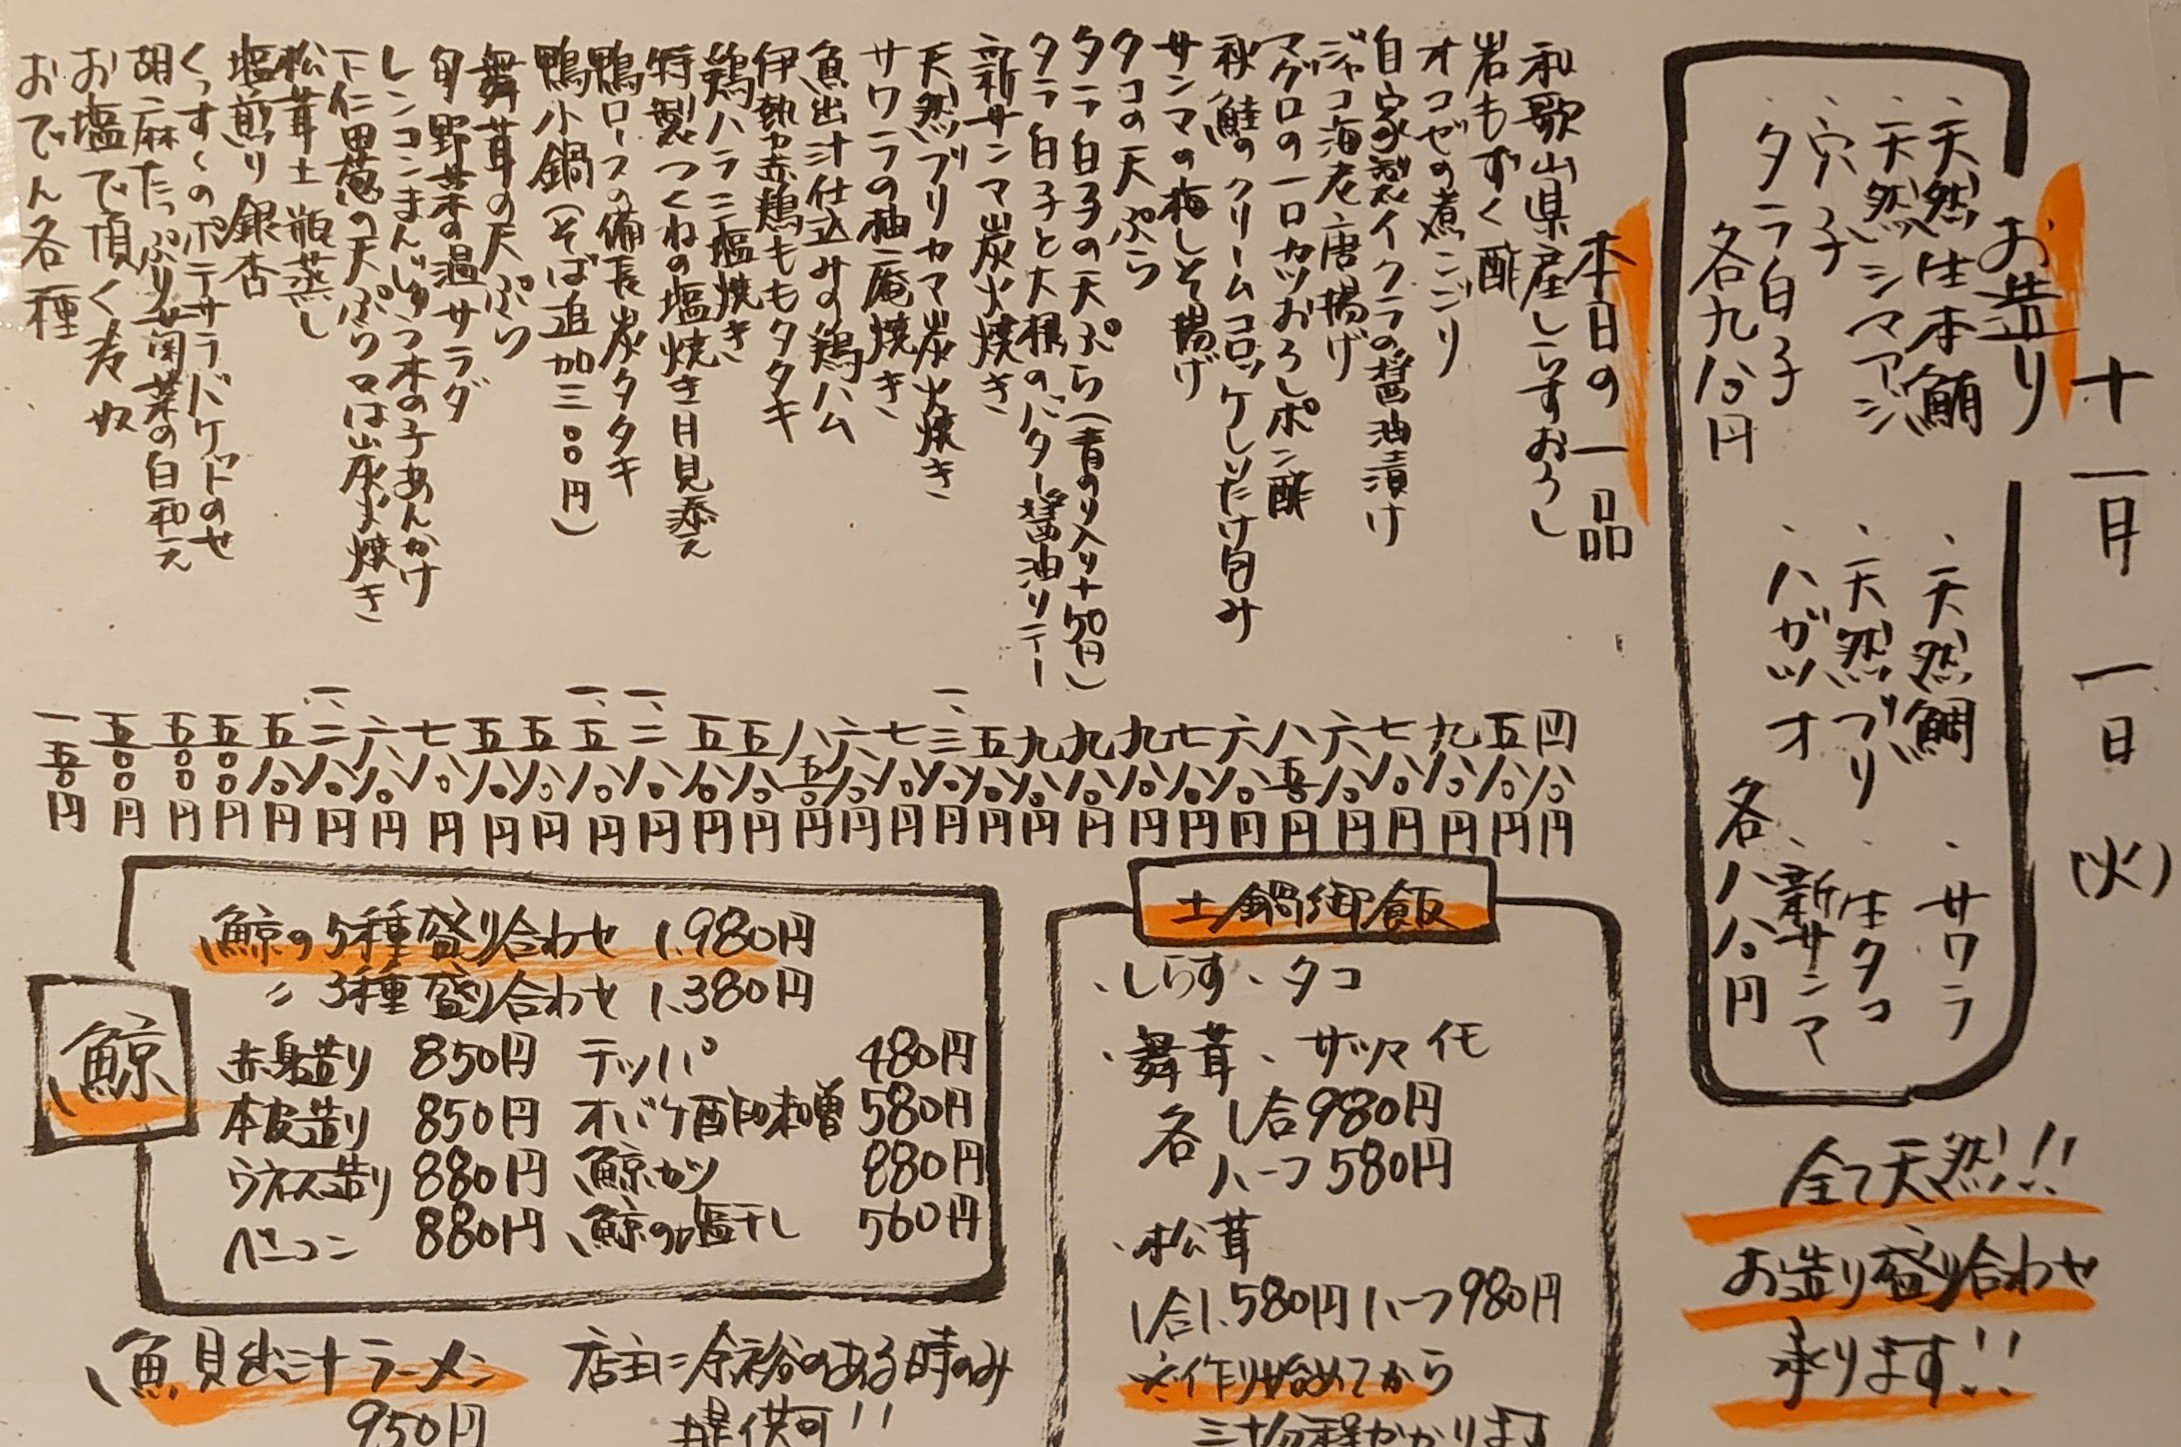 十一月一日(火)
お造り
・天然生本鮪 ・天然鯛 ・サワラ
・天然シマアジ ・天然ブリ ・生タコ
・穴子 ・ハガツオ ・新サンマ
・タラ白子
各九八〇円 各八八〇円
全て天然!!
お造り盛り合わせ
承ります!!
本日の一品
和歌山県産しらすおろし 四八〇円
岩もずく酢 五八〇円
オコゼの煮こごり 九八〇円
自家製イクラの醤油漬け 七八〇円
ジャコ海老唐揚げ 六八〇円
マグロの一口カツおろしポン酢 八五〇円
秋鮭のクリームコロッケしいたけ包み 六八〇円
サンマの梅しそ揚げ 七八〇円
タコの天ぷら 九八〇円
タラ白子の天ぷら(青のり入り+50円) 九八〇円
タラ白子と大根のバター醤油ソテー 九八〇円
新サンマ炭火焼き 五八〇円
天然ブリカマ炭火焼き 一、三八〇円
サワラの柚庵焼き 七八〇円
魚出汁仕込みの鶏ハム 六八〇円
伊勢赤鶏ももタタキ 八五〇円
鶏ハラミ塩焼き 五八〇円
特製つくねの塩焼き月見添え 五八〇円
鴨ロースの備長炭タタキ 一、二八〇円
鴨小鍋(そば追加三〇〇円) 一、五八〇円
舞茸の天ぷら 五八〇円
旬野菜の温サラダ 五八〇円
レンコンまんじゅう木の子あんかけ 七八〇円
下仁田葱の天ぷら又は炭火焼き 六八〇円
松茸土瓶蒸し 一、二八〇円
塩煎り銀杏 五八〇円
くっすくのポテサラバケットのせ 五〇〇円
胡麻たっぷり菊菜の白和え 五〇〇円
お塩で頂く冷奴 五〇〇円
おでん各種 一五〇円
土鍋御飯
・しらす・タコ
・舞茸・サツマイモ
各 1合980円
ハーフ580円
・松茸
1合1.580円 ハーフ980円
※作り始めてから
三十分程かかります
鯨
鯨の5種盛り合わせ 1.980円
〃 3種盛り合わせ 1.380円
赤身造り 850円 テッパ 480円
本皮造り 850円 オバケ酢味噌 580円
ウネス造り 880円 鯨カツ 880円
ベーコン 880円 鯨の塩干し 560円
魚貝出汁ラーメン 店主に余裕のある時のみ
950円 提供可!!